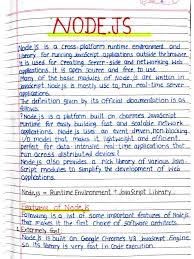 NODE.JS
Node.js is a cross-platform runtime environment and
library for running JavaScript applications outside the browser.
It is used for creating server-side and networking web
applications. It is open source and free to use.
Many of the basic modules of Node.js are written in
JavaScript. Node.js is mostly used to run real-time server
applications.
The definition given by its official documentation is as
follows:
Node.js is a platform built on chromes JavaScript
runtime for easily building fast and scalable network
applications. Node.js uses an event driven, non-blocking
I/O model that makes it lightweight and efficient,
perfect for data-intensive real-time applications that
run across distributed devices.
Node.js also provides a rich library of various Java-
Script modules to simplify the development of web
applications.
Node.js = Runtime Environment + JavaScript Library
Features of Node.js
Following is a list of some important features of Node.js
that makes it the first choice of software architects.
Extremely fast
Node.js is built on Google Chrome's V8 JavaScript Engine
so its library is very fast in code execution.